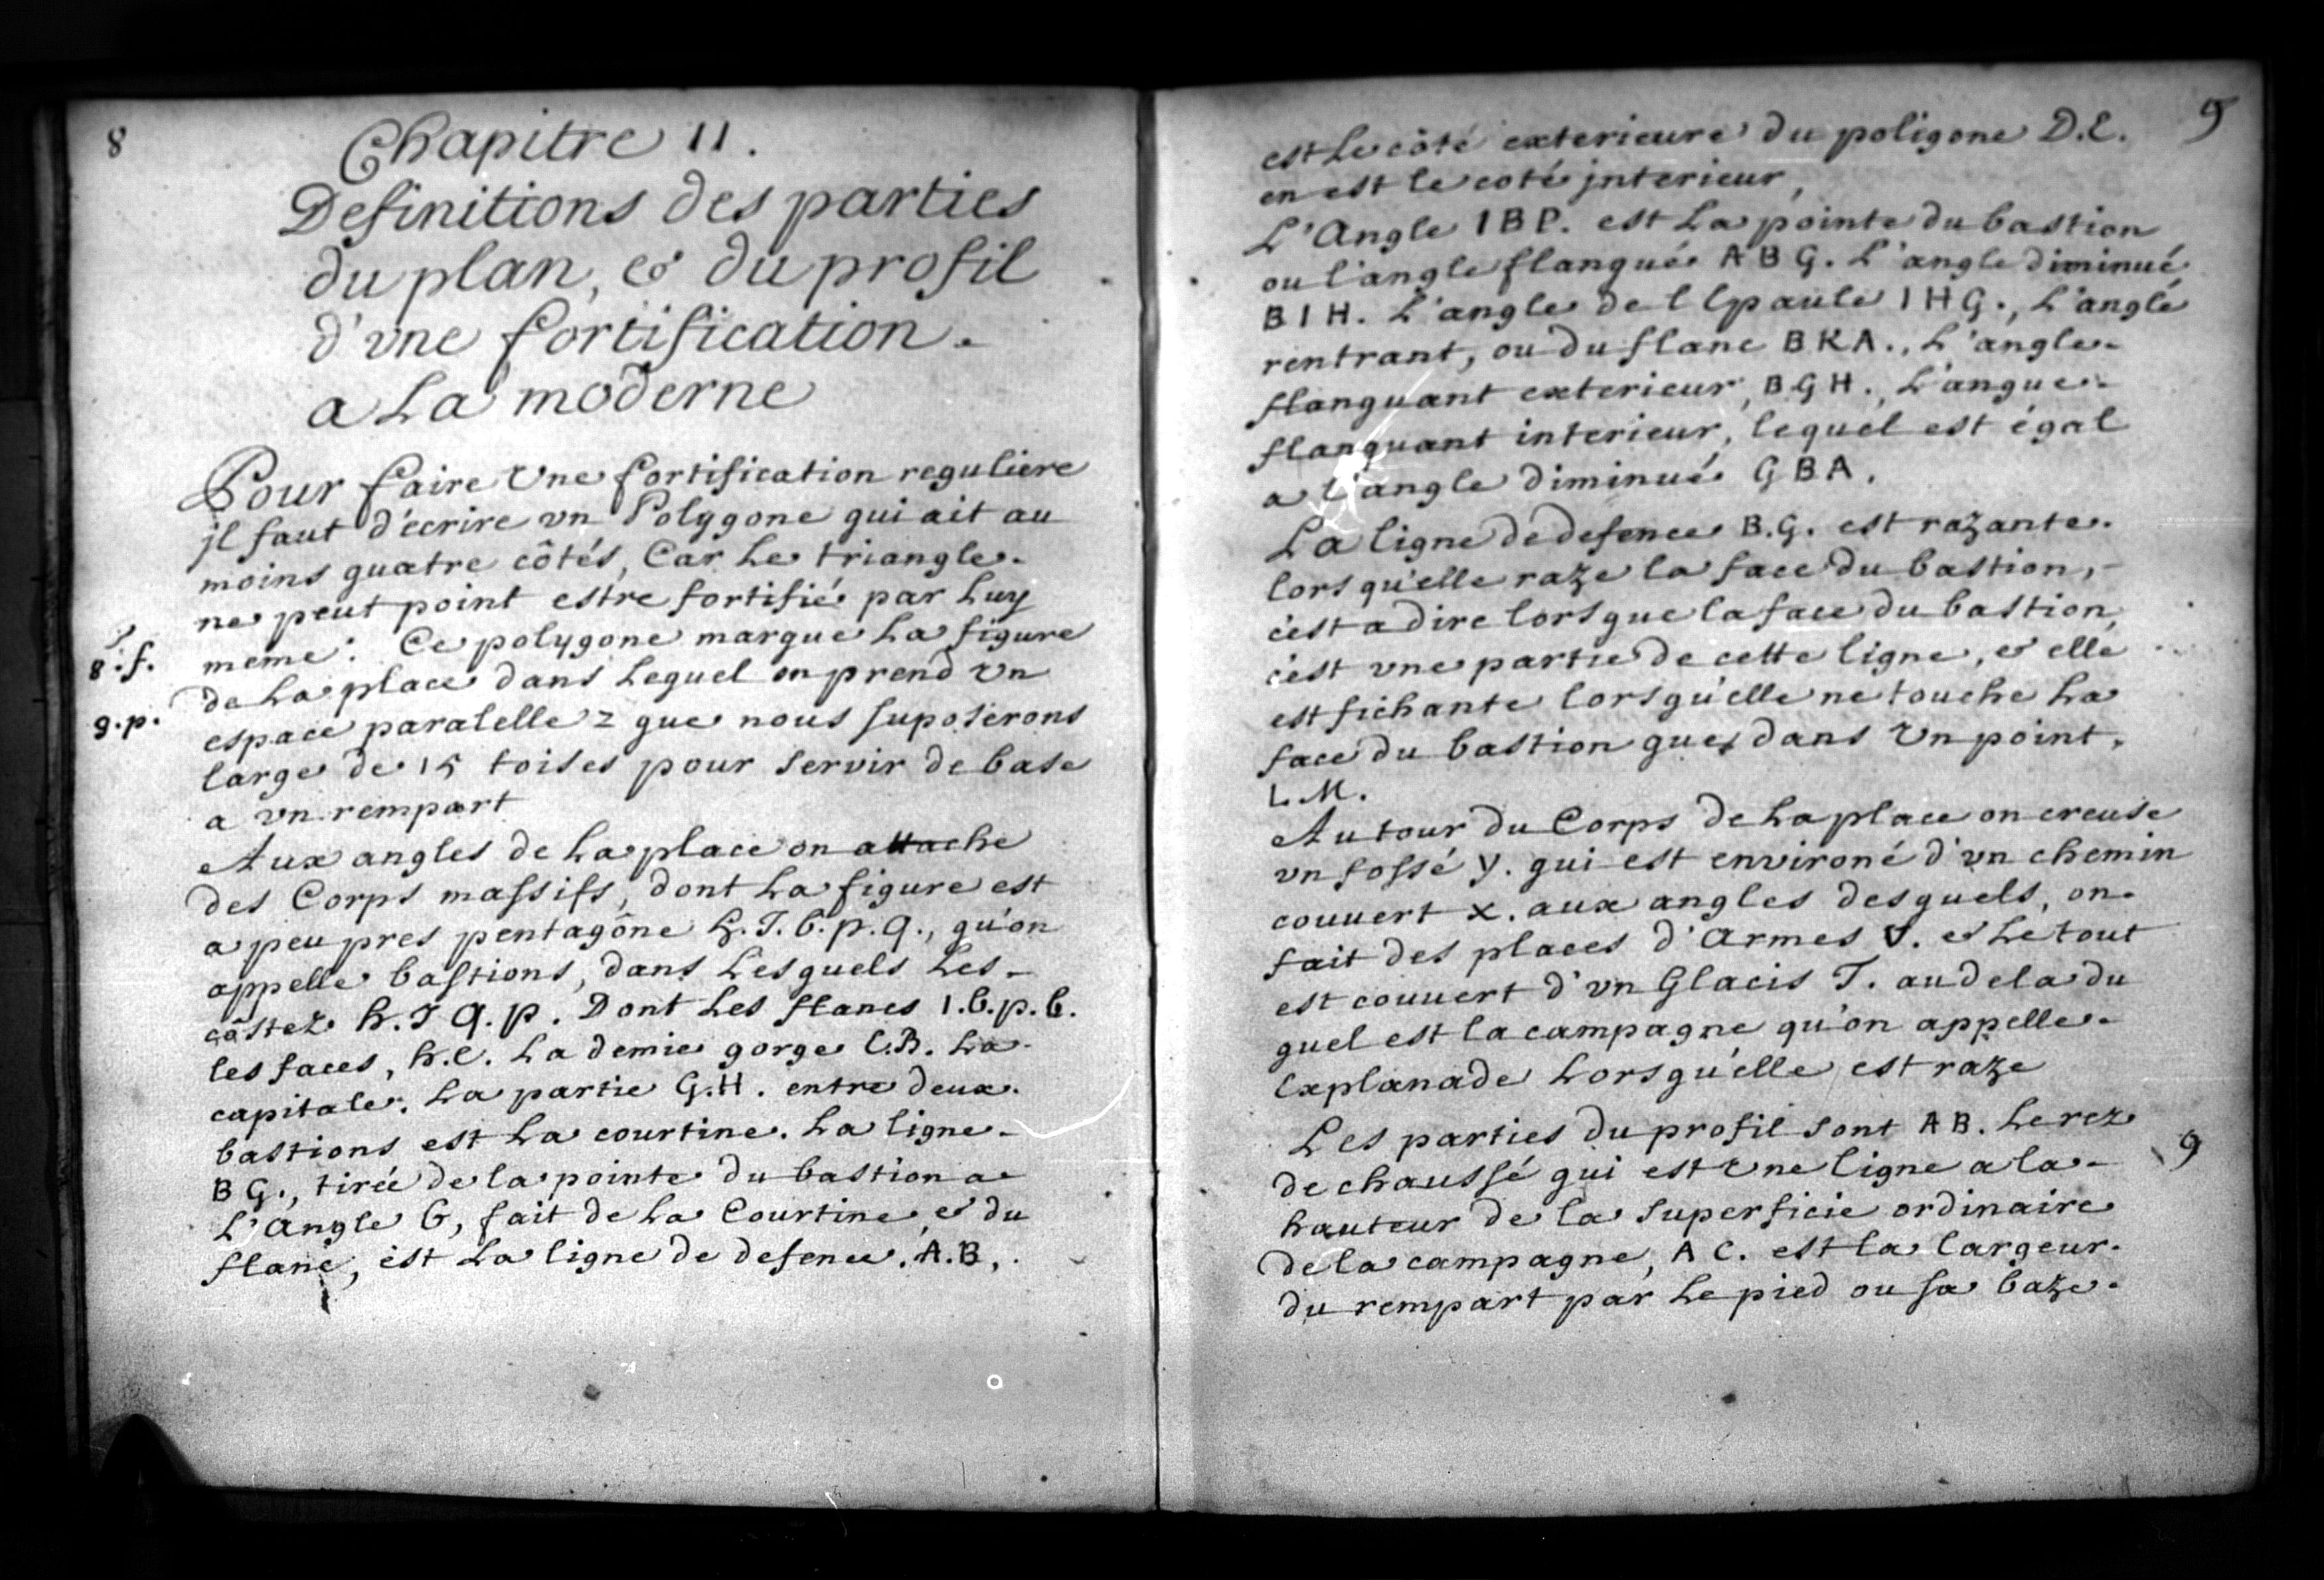 8
Chapitre 11.
Definitions des parties
du plan, & du profil
d'vne fortification.
a La moderne
Pour faire Vne fortification reguliere
jl faut d'écrire vn Polygone qui ait au
moins quatre côtés, Car Le triangle
ne peut point estre fortifié par Luy
meme. Ce polygone marque La figure
8.f.
de La place dans Lequel on prend Vn
9.p.
espace paralelle z que nous suposerons
large de 15 toises pour servir de base
a vn rempart
Aux angles de La place on attache
des Corps massifs, dont La figure est
a peu pres pentagône h.J.b.p.q., qu'on
appelle bastions, dans Lesquels Les
côstez h.J q.p. Dont Les flancs 1.b.p.b.
les faces, h.C. La demie gorge C.B. La
capitale. La partie G.H. entre deux
bastions est La courtine. La ligne
BG., tirée de la pointe du bastion a
L'Angle G, fait de La Courtine, & du
flanc, est La ligne de defence. A.B,.
9
est Le côté exterieure du poligone D.E.
en est le coté jnterieur,
L'Angle IBP. est La pointe du bastion
ou l'angle flanqué ABG. L'angle diminué
BIH. L'angle de l Epaule IHG., L'angle
rentrant, ou du flanc BKA., L'angle
flanquant exterieur, BGH., L'angue
flanquant interieur, lequel est égal
a l'angle diminué GBA.
La ligne de defence B.G. est razante
lors qu'elle raze la face du bastion,
c'est a dire lorsque la face du bastion,
c'est vne partie de cette ligne, & elle
est fichante lorsqu'elle ne touche La
face du bastion que dans Vn point.
L.M.
Autour du Corps de La place on creuse
vn fossé y. qui est environé d'vn chemin
couuert x. aux angles desquels, on
fait des places d'Armes V. & Le tout
est couuert d'vn Glacis T. au dela du
quel est la campagne qu'on appelle
Explanade Lorsqu'elle est raze
Les parties du profil sont AB. Le rez
9
de chaussé qui est Vne ligne a la
hauteur de la superficie ordinaire
de la campagne, AC. est la largeur
du rempart par Le pied ou sa baze.